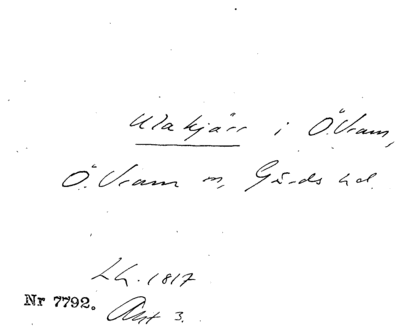 Ulakjärr i Ö. Vram,
Ö. Vram sn, Gärds hd.
LG. 1817
Nr 7792. Akt 3.